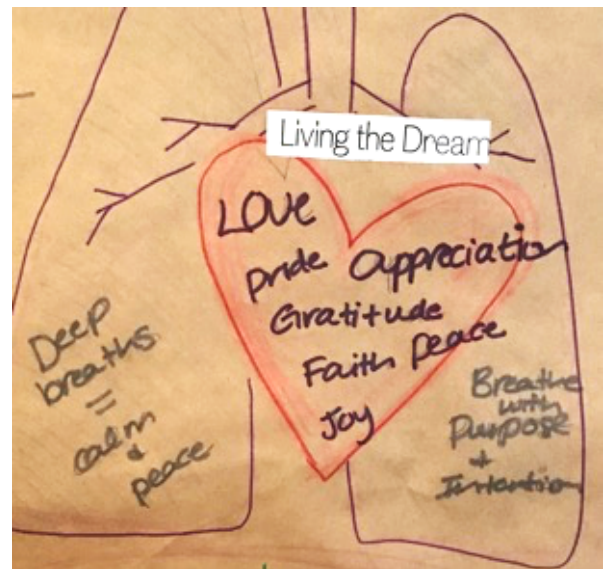 Living the Dream
Love
Pride Appreciation
Gratitude
Faith Peace
Joy
Deep
breaths
=
calm
+
peace
Breathe
with
Purpose
+
Intention